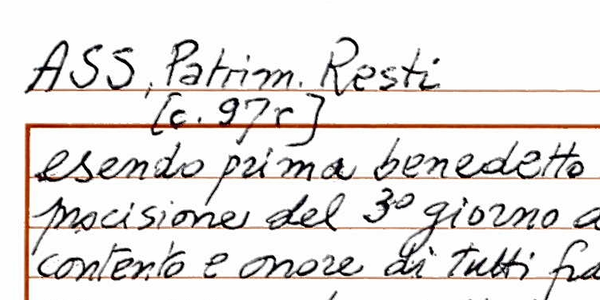 ASS, Patrim. Resti
[c. 97r]
esendo prima benedetto
procisione del 3º giorno a
contento e onore di tutti fra